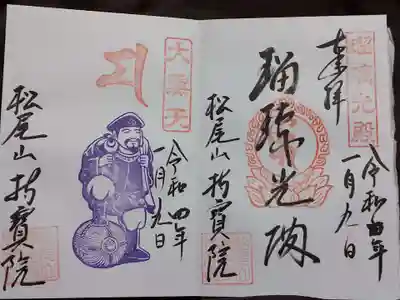 瑠璃光殿
奉拝
令和四年
一月九日
瑠璃光殿
松尾山 持寶院
大黒天
令和四年
一月九日
松尾山 持寶院